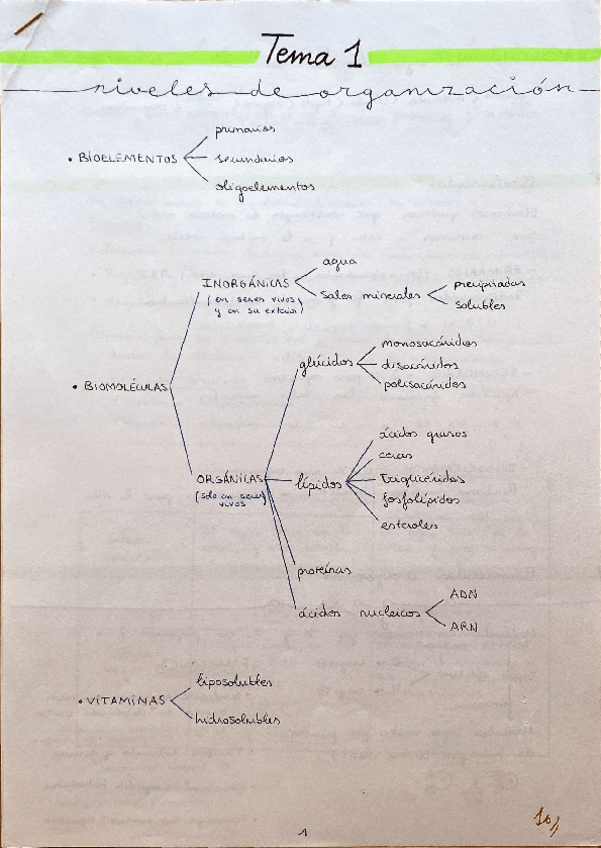 Tema 1
niveles de organización
• BIOELEMENTOS
primarios
secundarios
oligoelementos
• BIOMOLÉCULAS
INORGÁNICAS
(en seres vivos
y en su exterior)
agua
sales minerales
precipitadas
solubles
ORGÁNICAS
(sólo en seres
vivos)
glúcidos
monosacáridos
disacáridos
polisacáridos
lípidos
ácidos grasos
ceras
triglicéridos
fosfolípidos
esteroles
proteínas
ácidos nucleicos
ADN
ARN
• VITAMINAS
liposolubles
hidrosolubles
1